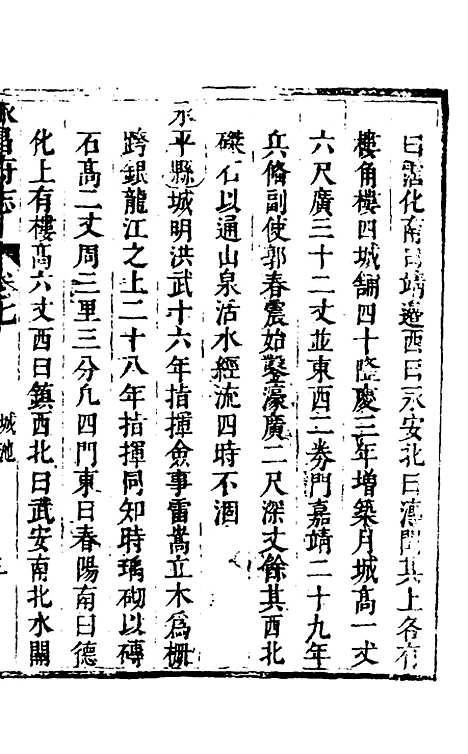 曰霑化南曰靖邉西曰永安北曰通門其上各有
樓角樓四城舖四十隆慶三年增築月城高一丈
六尺廣三十二丈並東西二券門嘉靖二十九年
兵備副使郭春震始鑿濠廣二尺深丈餘其西北
磔石以通山泉活水經流四時不涸
永平縣城明洪武十六年指揮僉事雷嵩立木為柵
跨銀龍江之上二十八年指揮同知時瑀砌以磚
石高二丈周三里三分凡四門東曰春陽南曰德
化上有樓高六丈西曰鎮西北曰武安南北水關
永昌府志 卷七 城池